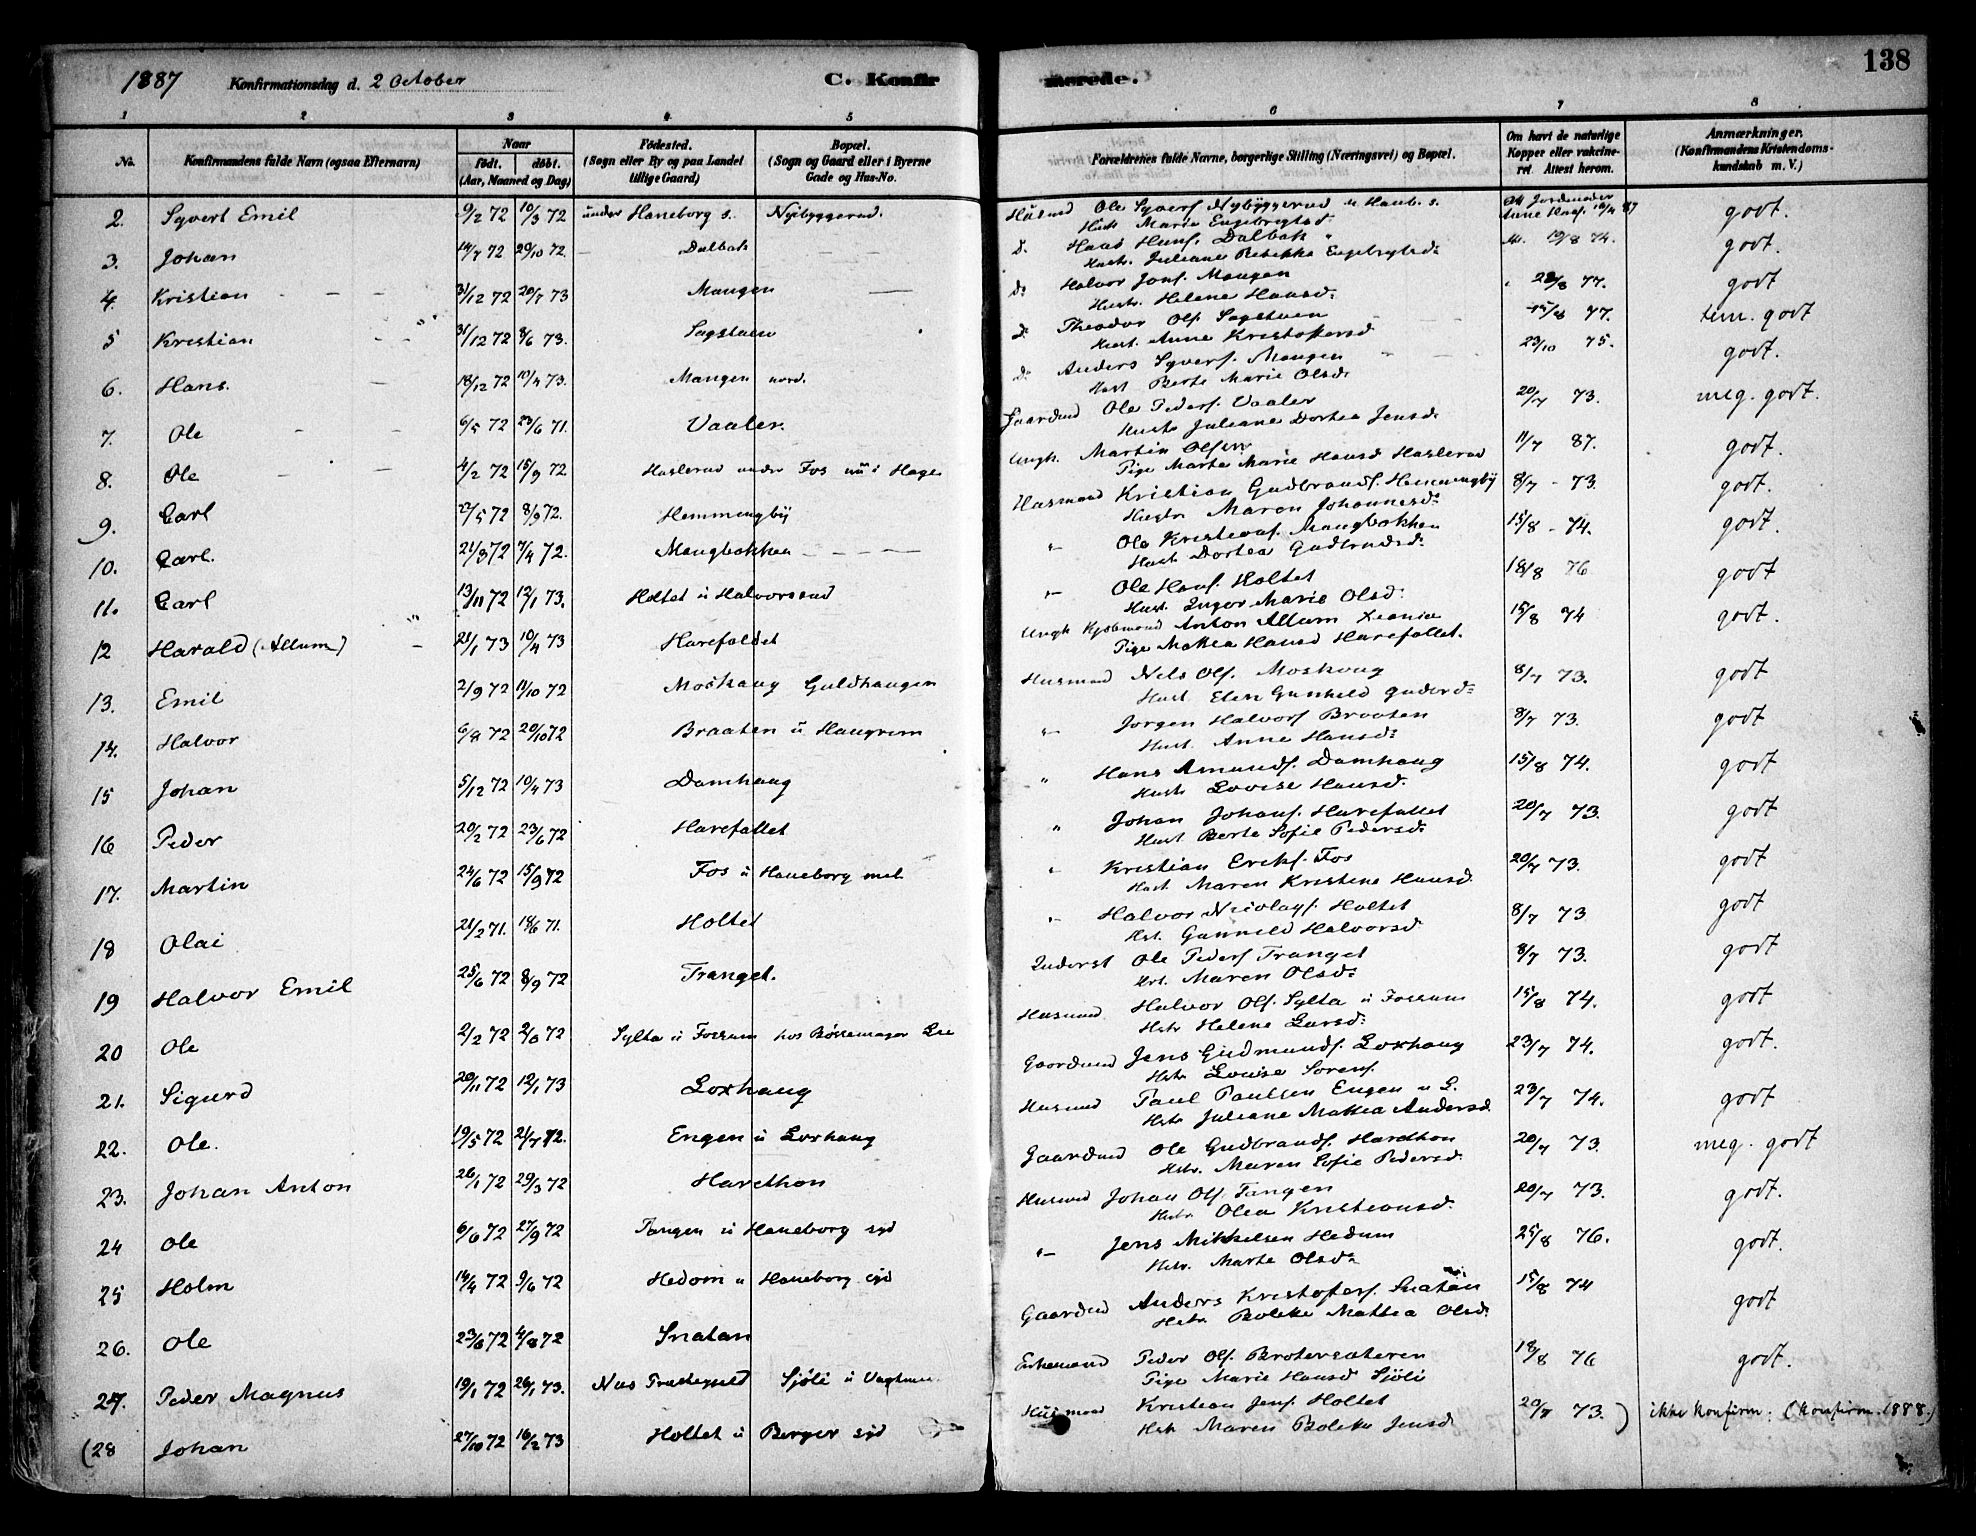 1887 Konfirmationsdag d. 2 October C. Konfir merede. 138
1 2 3 4 5 6 7 8
No. Konfirmandens fulde Navn (ogsaa Efternavn) Naar født. døbt. (Aar, Maaned og Dag) Fødested. (Sogn eller By og paa Landet tillige Gaard) Bopæl. (Sogn og Gaard eller i Byerne Gade og Hus-No. Forældrenes fulde Navne, borgerlige Stilling (Næringsvei) og Bopæl. Om havt de naturlige Kopper eller vakcineret. Attest herom. Anmærkninger. (Konfirmandens Kristendomskundskab m. V.)
2. Syvert Emil 9/2 72 10/3 72 under Haneborg s. Nyibyggerud. Husmd Ole Syvers. Nybyggerud u Hanb. s. godt.
Hust. Maria Engebrigtsd.
3. Johan 14/7 72 20/10 72 Dalbak d. Haas Hans. Dalbak 19/8 74. godt.
Hust. Juliane Rebekka Engebrigtsd:
4. Kristian 31/12 72 20/7 73 Mangen d: Halvor Jons. Mangen 28/8 77. godt
Hust. Helene Hansd:
5 Kristian 31/12 72 8/6 73. Sagstuen d. Theodor Ols. Sagstuen 15/8 77. tem. godt
Hust. Anne Kristoffersd
6. Hans. 18/12 72 10/4 73. Mangen nord. d: Anders Syvers. Mangen 23/10 75. godt.
Hust Berte Marie Olsd:
7. Ole 6/5 72 23/6 71. Vaaler. Gaardmd Ole Peders. Vaaler 20/7 73. meg. godt.
Hustr Juliane Dortea Jensd:
8. Ole 4/2 72 15/9 72 Haslerud under Fos nu i Hage Ungk. Martin Olsen 11/7 87. godt.
Pige Marte Marie Hansd Haslerud
9. Carl 2/5 72 8/9 72. Hemmengby Husmand Kristian Gudbrands. Hemmingby 8/7 - 73. godt.
Hustr Maren Johannesd:
10. Carl. 21/3 72 7/4 72. Mangbakken Ole Kristians. Mangbakken 15/8 - 74. godt.
Hust Dortea Gudbrandsd:
11. Carl 13/11 72 12/1 73. Holtet u Halvorsrud Ole Hans. Holtet 18/8 76 godt
Hust. Inger Marie Olsd:
12 Harald (Allum) 21/1 73 10/4 73 Harefaldet Ungk Anton Allum 15/8 74 godt.
Pige Mattea Hansd Harefallet.
13. Emil 2/9 72 11/10 72 Moshaug Guldhaugen Husmand Nels Ols. Moshaug 8/7 73. godt
Hust. Elen Gunhild
14. Halvor 6/8 72 20/10 72 Braaten u Haugrim Jorgen Halvors Braaten 8/7 73. godt
Hust. Anne Hansd:
15 Johan 5/12 72 10/4 73 Damhaug Hans Amunds. Damhaug 15/8 74. godt
Hustr Lovise Hansd.
16 Peder 20/2 72 23/6 72 Harefallet Johan Johans. Harefallet 20/7 73. godt
Hust Berte Sofie Pedersd.
17. Martin 24/6 72 15/9 72 Fos u Haneborg mel. Kristian Eriks. Fos 20/7 73. godt
Hust Maren Kristine Hansd.
18 Olai 21/2 71. 18/6 71. Holtet Halvor Nicolays. Holtet 8/7 73 godt
Hst. Gunnild Halvorsd.
19 Halvor Emil 25/6 72 8/9 72 Tranget. Inderst Ole Peders Tranget 8/7 73. godt
Hst. Maren Olsd:
20 Ole 2/2 72 72 Sylta u Fossum hos Børsemager Lie Husmand Halvor Ols. Sylta u Fossum 15/8 74. godt
Hstr Helene Larsd:
21. Sigurd 20/11 72 12/1 73 Loxhaug Gaardmd Jens Gudmunds. Loxhaug 23/7 74. godt.
Hstr Louise Sorens.
22. Ole. 19/5 72 21/7 72. Engen u Loxhaug Husmd Paul Paulsen Engen u L. 23/7 74. godt
Hstr Juliane Mattea Andersd.
23. Johan Anton 26/1 72 29/3 72 Harethon Gaardmd Ole Gudbrands. Harethon 20/7 73. meg. godt
Hstr. Maren Sofie Pedersd.
24 Ole 6/6 72 27/9 72 Tangen u Haneborg syd Husmd Johan Ols. Tangen 20/7 73. godt.
Hustr Olea Kristiansd.
25 Holm 14/4 72 9/6 72 Hedom u Haneborg syd Jens Mikkelsen Hedum 25/8 76. godt.
Hstr. Marte Olsd:
26. Ole 23/6 72 4/8 72 Snatan Gaardmd Anders Kristoffers. Snatan 15/8 74 godt
Hstr Bolette Mattea Olsd:
27. Peder Magnus 19/1 72 26/1 73. Nas Sjöli u Enkemand Peder Ols. Brotersæteren 18/8 76 godt.
Pige Marie Hansd Sjöli
(28 Johan 27/10 72 16/2 73 Holtet u Berger syd Husmand Kristian Jens. Holtet 20/7 73. ) ikke konfirm. (konfirm. 1888.)
Hst Maren Bolette Jensd